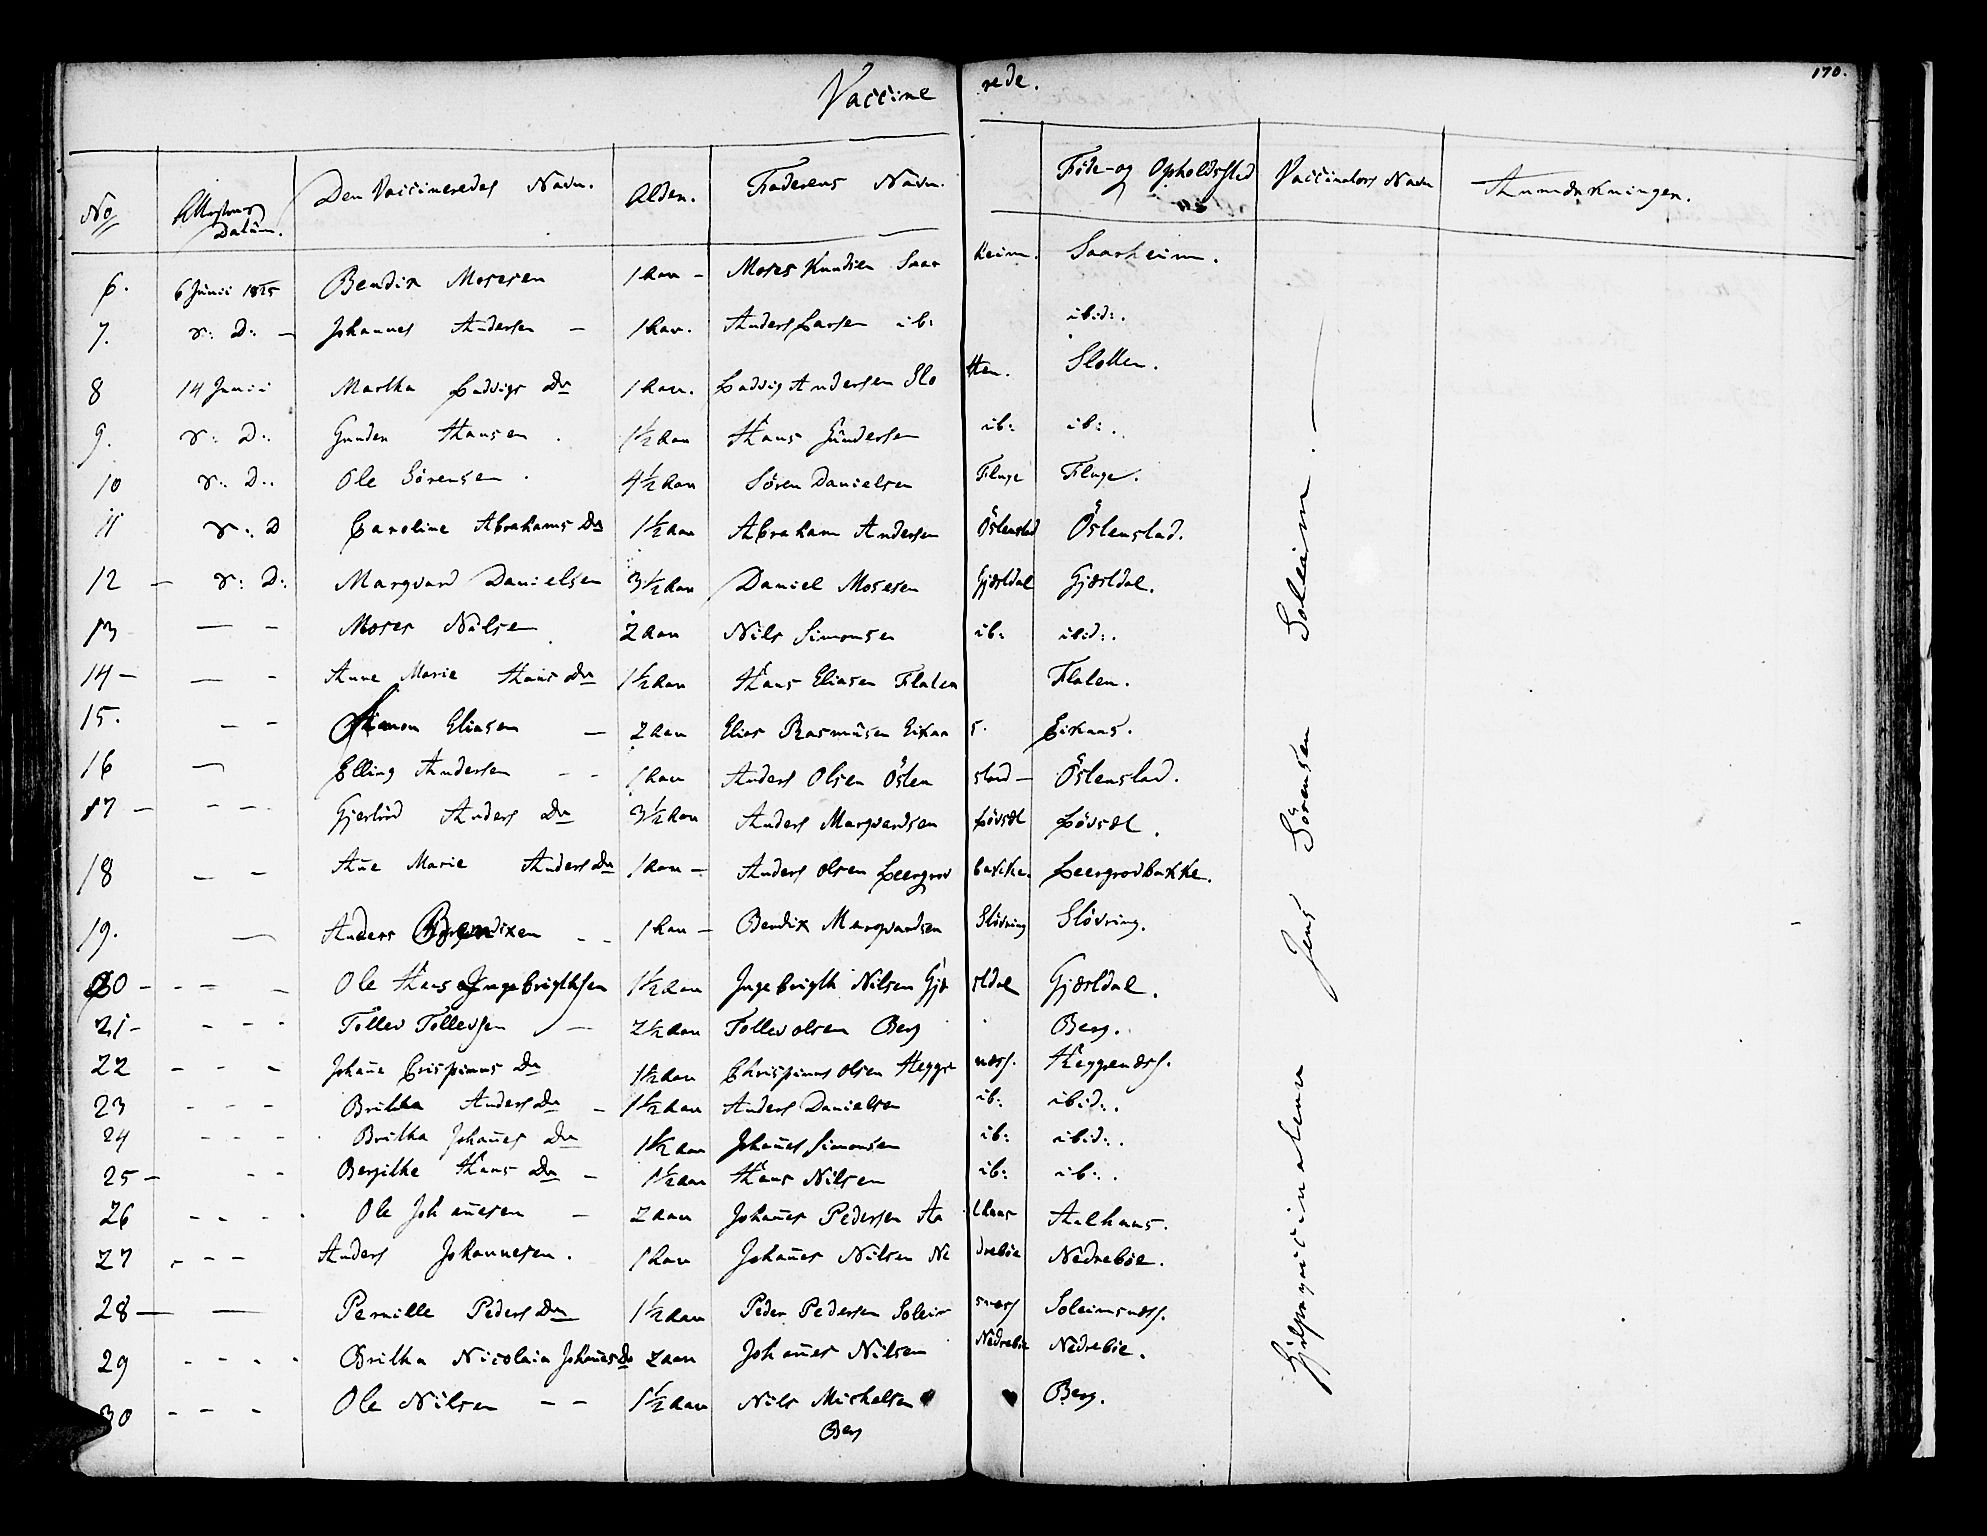 170.
Vaccine rede.
No Attestens Datum. Den Vaccineredes Navn. Alder. Faderens Navn. Føde- og Opholdssted Vaccinators Navn Anmærkninger.
6. 6 Junii 1825 Bendix Mosesen 1 Aar - Moses Knudsen Saarheim. Saarheim.
7. d: D: - Johannes Andersen - 1 Aar. Anders Larsen ib: ibid:.
8 14 Junii Martha Ludvigs Dr 1 Aar. Ludvig Andersen Slotten. Slotten.
9. d: D: Gunder Hansen . 1½ Aar Hans Gundersen ib: ib:.
10 d: D: Ole Sørensen . 4½ Aar Søren Danielsen Fluge Fluge.
11 d: D Caroline Abrahams Dr 1½ Aar Abraham Andersen Östenstad Östenstad.
12 - d: D: Marqvard Danielsen 3½ Aar Daniel Mosesen Gjæsldal Gjæsldal.
13 — - Moses Nilsen 2 Aar Nils Simonsen ib: ibid:.
14 - — - Anne Marie Hans Dr 1½ Aar Hans Eliasen Flaten Flaten.
15. - - Simon Eliasen - 2 Aar Elias Rasmusen Eikaas. Eikaas.
16 — Elling Andersen - - 1 Aar Anders Olsen Östenstad - Östenstad.
17 - - - Gjertrud Anders Dr 3½ Aar Anders Marqvardsen Løvsæt Løvsæt.
18 - - Añe Marie Anders Dr 1 Aar - Anders Olsen Leergrovbakke. Leergrovbakke.
19. — Anders Bendixen - - 1 Aar - Bendix Marqvardsen Slövring Slövring.
20 - - - - Ole Hans Ingebrigthsen 1½ Aar Ingebrigth Nilsen Gjæsldal Gjæsldal.
21 - - - - Tollev Tollevsen - 2½ Aar Tollev Olsen Berg Berg.
22 - - - Johañe Crispinus Dr 1½ Aar Chrispinus Olsen Heggenæss. Heggenæss.
23 - - - Britha Anders Dr - 1½ Aar Anders Danielsen ib: ibid:.
24 - - - Britha Johañes Dr 1½ Aar Johañes Simonsen ib: ibid:.
25 - - - Bergithe Hans Dr - 1½ Aar Hans Nilsen ib: ib:.
26 - - - Ole Johañesen - 2 Aar Johañes Pedersen Aalhaus Aalhaus.
27 - - - Anders Johannesen. 1 Aar Johañes Nilsen Nedrebøe Nedrebøe.
28 - — Pernille Peders Dr 1½ Aar Peder Pedersen Soleimsnæss Soleimsnæss.
29 - - - - Britha Nicolaia Johañes Dr 2 Aar Johañes Nilsen Nedrebøe Nedrebøe.
30 - - - Ole Nilsen - - 1½ Aar Nils Michelsen Berg Berg.
Hjelpevaccinateur Jens Sörensen Soleim. —